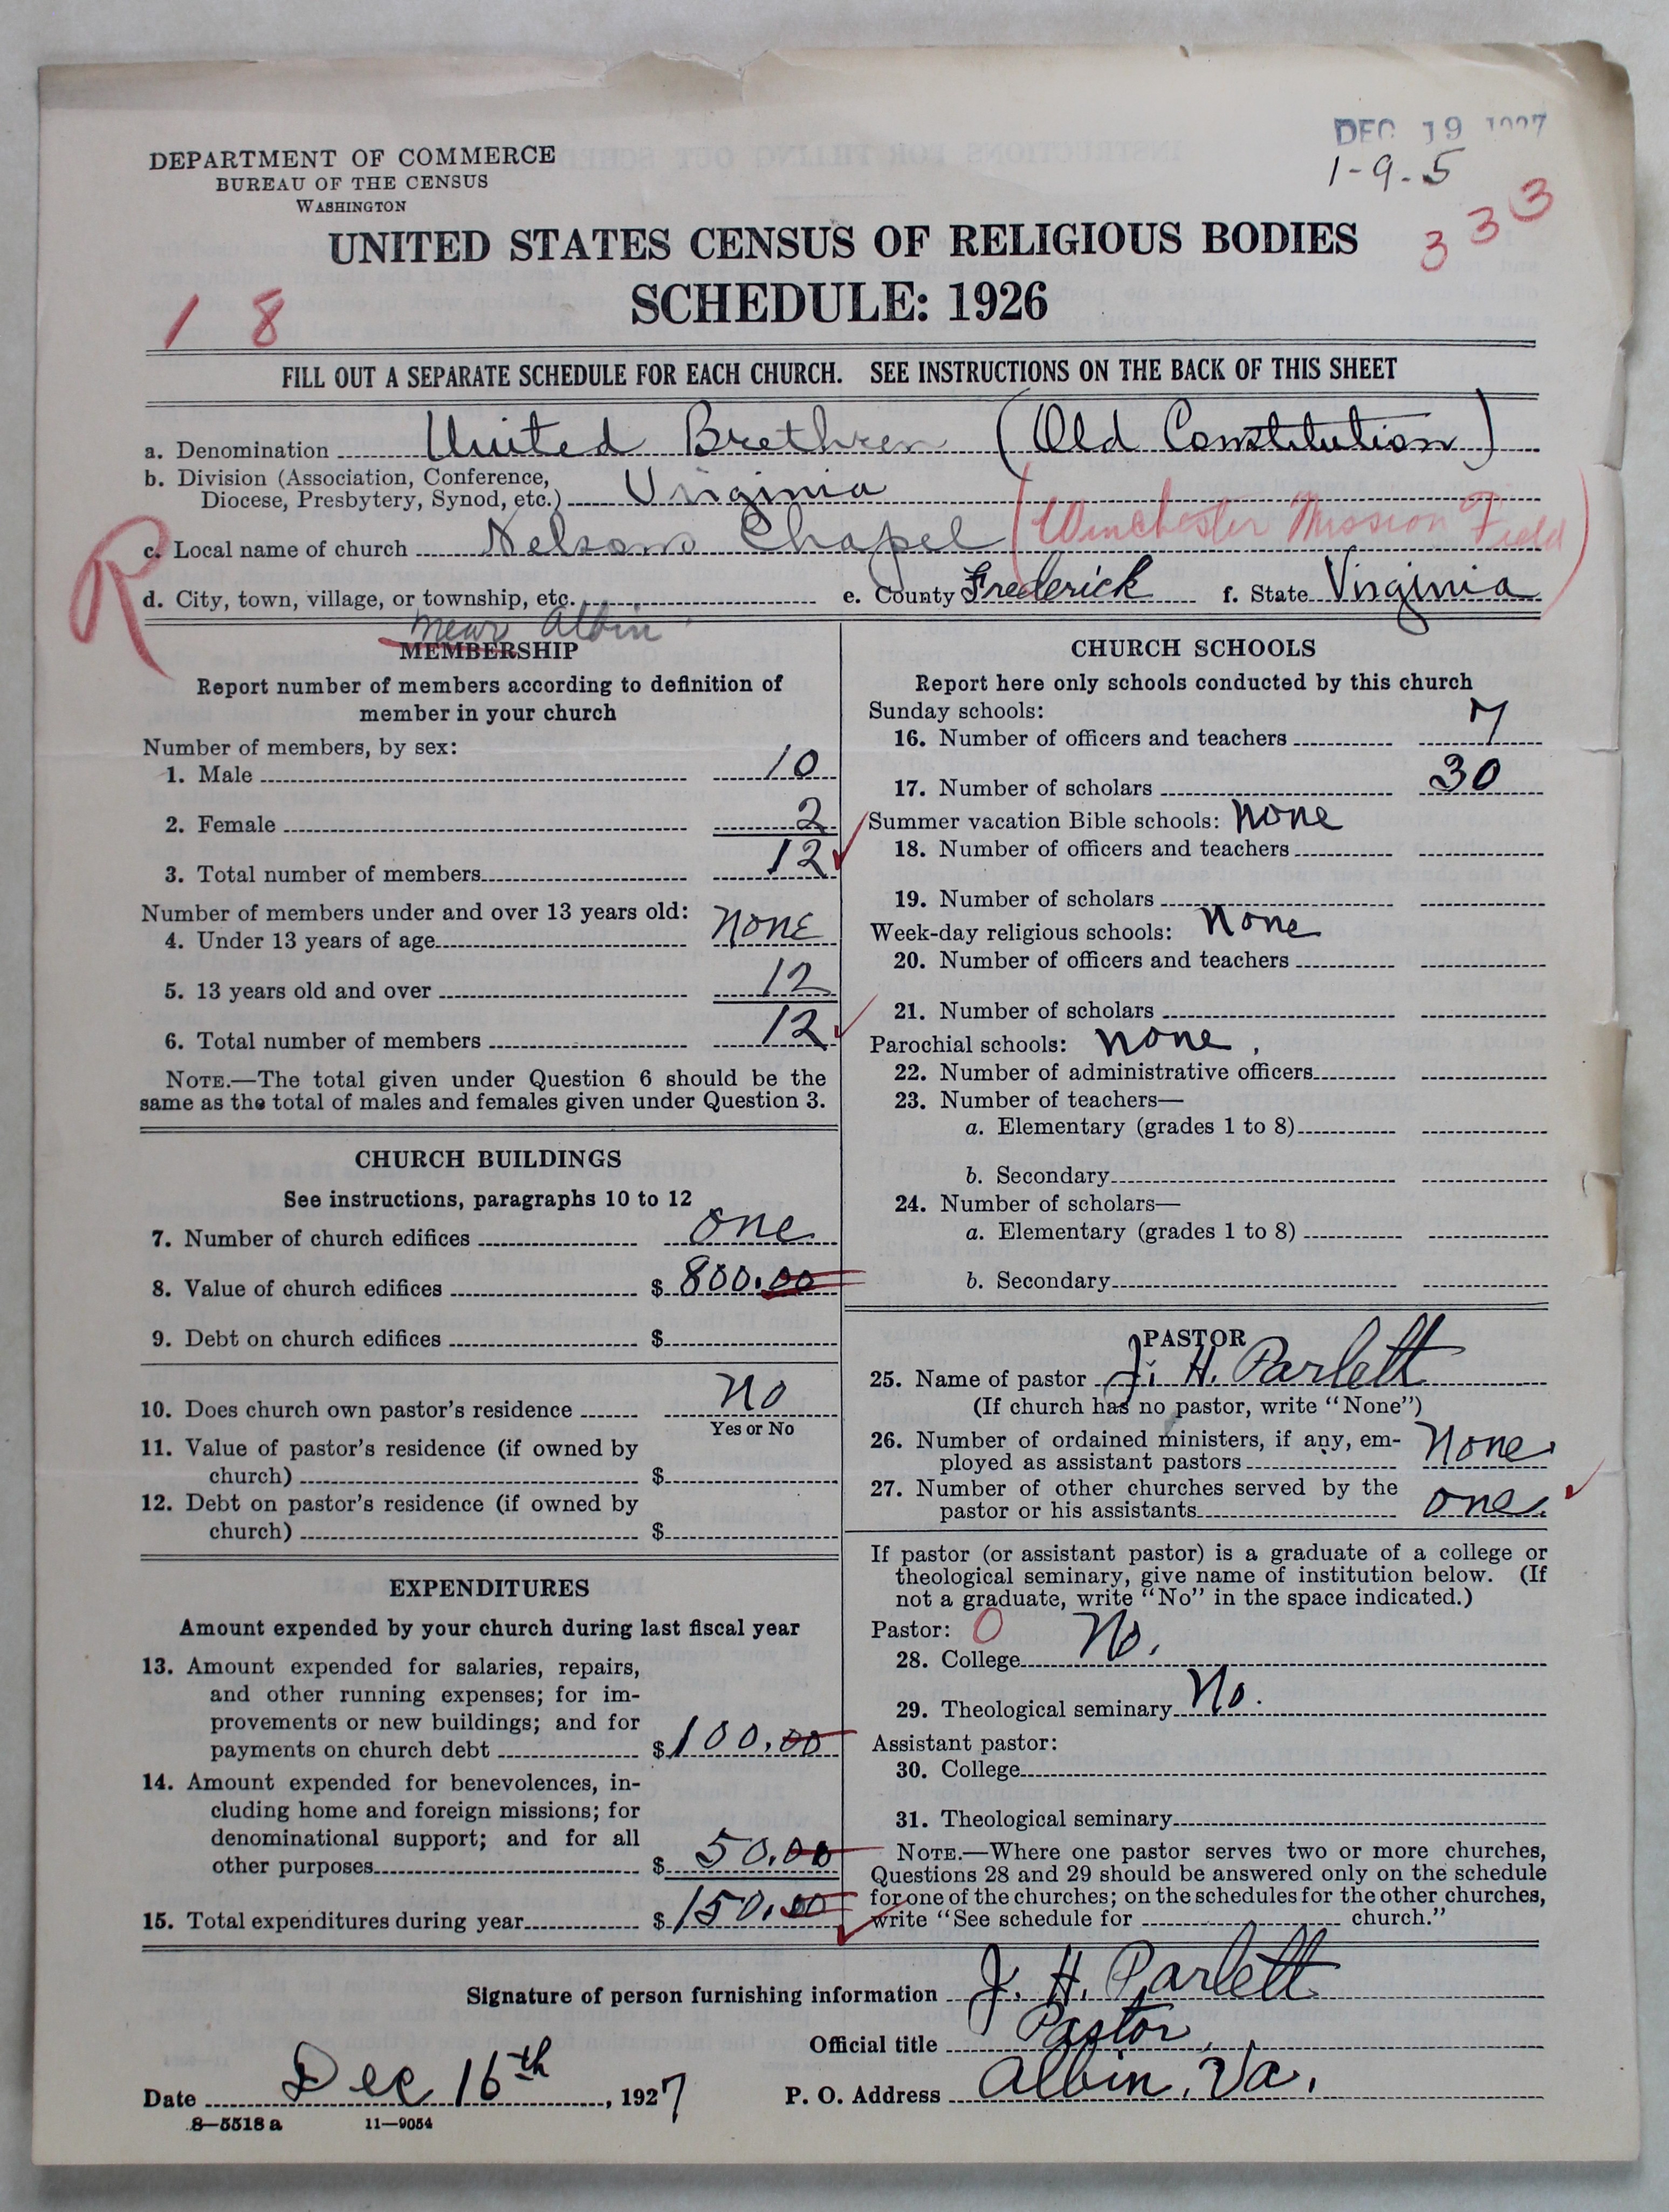 DEC 19 1927
1-9-5
333
DEPARTMENT OF COMMERCE
BUREAU OF THE CENSUS
WASHINGTON
UNITED STATES CENSUS OF RELIGIOUS BODIES
SCHEDULE: 1926
1 8
FILL OUT A SEPARATE SCHEDULE FOR EACH CHURCH. SEE INSTRUCTIONS ON THE BACK OF THIS SHEET
a. Denomination United Brethren (Old Constitution)
b. Division (Association, Conference,
Diocese, Presbytery, Synod, etc.) Virginia
R
c. Local name of church Nelsons Chapel (Winchester Mission Field)
d. City, town, village, or township, etc. e. County Frederick f. State Virginia
near Albin
MEMBERSHIP
Report number of members according to definition of
member in your church
Number of members, by sex:
1. Male 10
2. Female 2
3. Total number of members 12
Number of members under and over 13 years old:
4. Under 13 years of age none
5. 13 years old and over 12
6. Total number of members 12
NOTE.—The total given under Question 6 should be the
same as the total of males and females given under Question 3.
CHURCH BUILDINGS
See instructions, paragraphs 10 to 12
7. Number of church edifices one
8. Value of church edifices $ 800.00
9. Debt on church edifices $
10. Does church own pastor's residence no
Yes or No
11. Value of pastor's residence (if owned by
church) $
12. Debt on pastor's residence (if owned by
church) $
EXPENDITURES
Amount expended by your church during last fiscal year
13. Amount expended for salaries, repairs,
and other running expenses; for im-
provements or new buildings; and for
payments on church debt $ 100.00
14. Amount expended for benevolences, in-
cluding home and foreign missions; for
denominational support; and for all
other purposes $ 50.00
15. Total expenditures during year $ 150.00
CHURCH SCHOOLS
Report here only schools conducted by this church
Sunday schools:
16. Number of officers and teachers 7
17. Number of scholars 30
Summer vacation Bible schools: none
18. Number of officers and teachers
19. Number of scholars
Week-day religious schools: None
20. Number of officers and teachers
21. Number of scholars
Parochial schools: none.
22. Number of administrative officers
23. Number of teachers—
a. Elementary (grades 1 to 8)
b. Secondary
24. Number of scholars—
a. Elementary (grades 1 to 8)
b. Secondary
PASTOR
25. Name of pastor J. H. Parlett
(If church has no pastor, write "None")
26. Number of ordained ministers, if any, em-
ployed as assistant pastors None.
27. Number of other churches served by the
pastor or his assistants one.
If pastor (or assistant pastor) is a graduate of a college or
theological seminary, give name of institution below. (If
not a graduate, write "No" in the space indicated.)
Pastor: 0
28. College No.
29. Theological seminary No.
Assistant pastor:
30. College
31. Theological seminary
NOTE.—Where one pastor serves two or more churches,
Questions 28 and 29 should be answered only on the schedule
for one of the churches; on the schedules for the other churches,
write "See schedule for church."
Signature of person furnishing information J. H. Parlett
Official title Pastor
Date Dec 16th, 1927 P. O. Address Albin, Va.
8—5518 a 11—9054